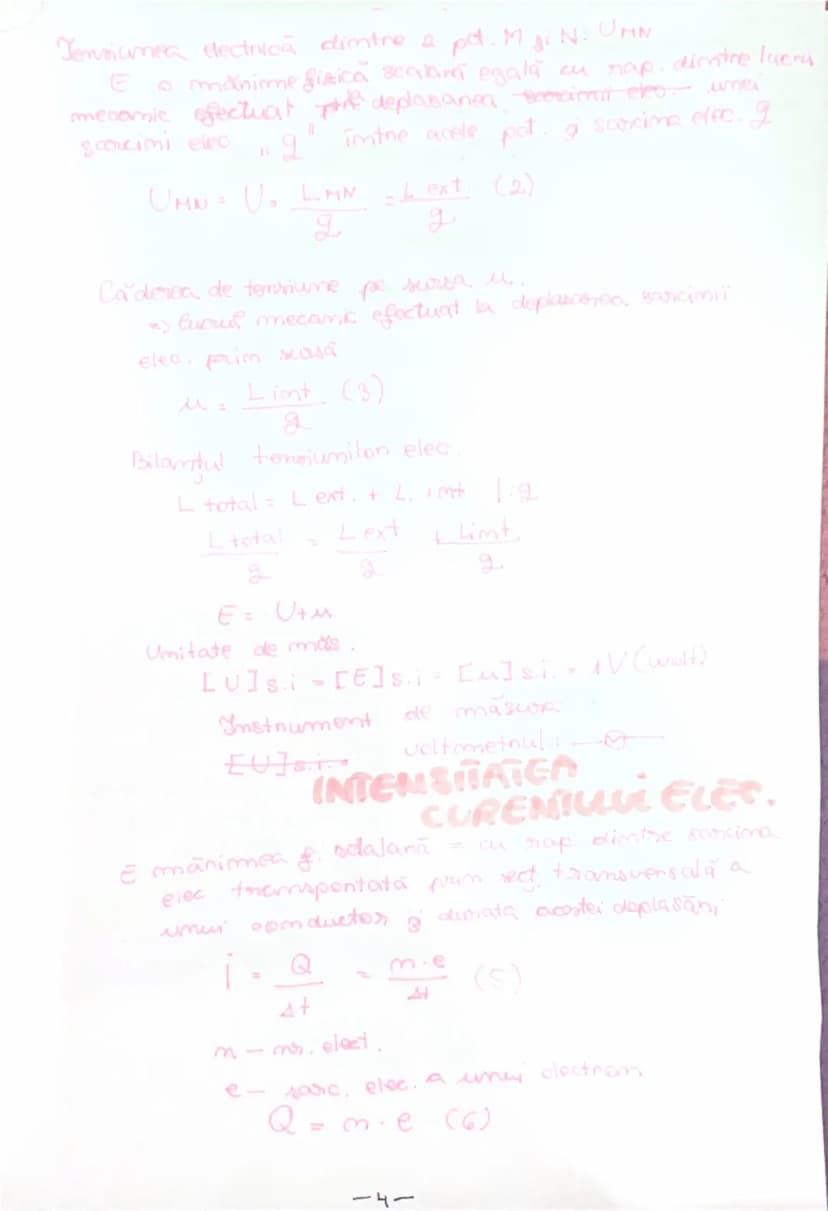 Tensiunea electrică dintre 2 pct. M și N: UMN
E o mărime fizică scalară egală cu rap. dintre lucrul
mecanic efectuat deplasarea sarcinii elec. unei
sarcini elec "q" între acele pct. și sarcina elec. q
UMN = U = LMN/q = L ext./q (2)
Căderea de tensiune pe sursa u.
=> lucrul mecanic efectuat la deplasarea sarcinii
elec. prin sursă
u = L int/q (3)
Bilanțul tensiunilor elec.
L total = L ext. + L. int |:q
L total/q = L ext/q + L int./q
E = U+u
Unitate de măs.
[U]s.i = [E]s.i = [u]s.i. = 1V (wolt)
Instrument de măsură
[U]s.i. = voltometrul:
INTENSITATEA
CURENTULUI ELEC.
E mărimea f. scalară = cu rap. dintre sarcina
elec transportată prin secț. transversală a
unui conductor și durata acestei deplasări
i = Q/Δt = n·e/Δt (5)
n - nr. elect.
e - sarc. elec. a unui electron
Q = n·e (6)
-4-